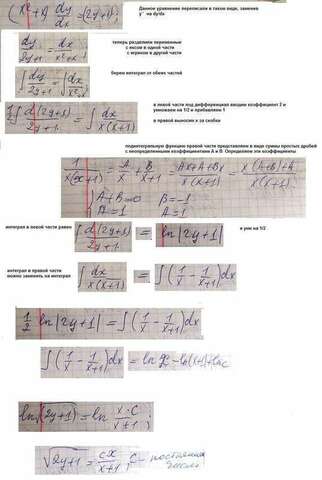 (x²+x) dy/dx = (2y+1);
Данное уравнение перепесали в таком виде, заменив
y` на dy/dx
dy/2y+1 = dx/x²+x;
теперь разделили переменные
с иксом в одной части
с игреком в другой
∫ dy/2y+1 = ∫ dx/x²+x
берем интеграл от обеих частей
1/2 ∫ d(2y+1)/2y+1 = ∫ dx/x(x+1)
в левой части под дифференциал вводим коэффициент 2 и
умножаем на 1/2 и прибавляем 1
в правой выносим x за скобки
подинтегральную функцию правой части представляем в виде суммы простых дробей
с неопределенными коэффициентами А и В Определяем эти коэффициенты
1/x(x+1) = A/x + B/x+1 = Ax+A+Bx/x(x+1) = x(A+B)+A/x(x+1);
{A+B=0 B=-1
A=1 A=1
интеграл в левой части равен
∫ d(2y+1)/2y+1 = ln|2y+1|
и умн на 1/2
интеграл в правой части
можно заменить на интеграл
∫ dx/x(x+1) = ∫(1/x - 1/x+1)dx
1/2 ln|2y+1| = ∫(1/x - 1/x+1)dx
∫(1/x - 1/x+1)dx = ln x - ln(x+1) + ln c
ln√(2y+1) = ln x·C/x+1;
√2y+1 = cx/x+1; C - постоянная